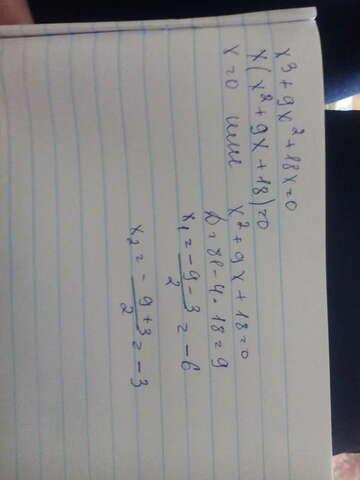 x³ + 9x² + 18x = 0
x(x² + 9x + 18) = 0
x = 0 или x² + 9x + 18 = 0
D = 81 - 4 · 18 = 9
x₁ = (-9 - 3)/2 = -6
x₂ = (-9 + 3)/2 = -3